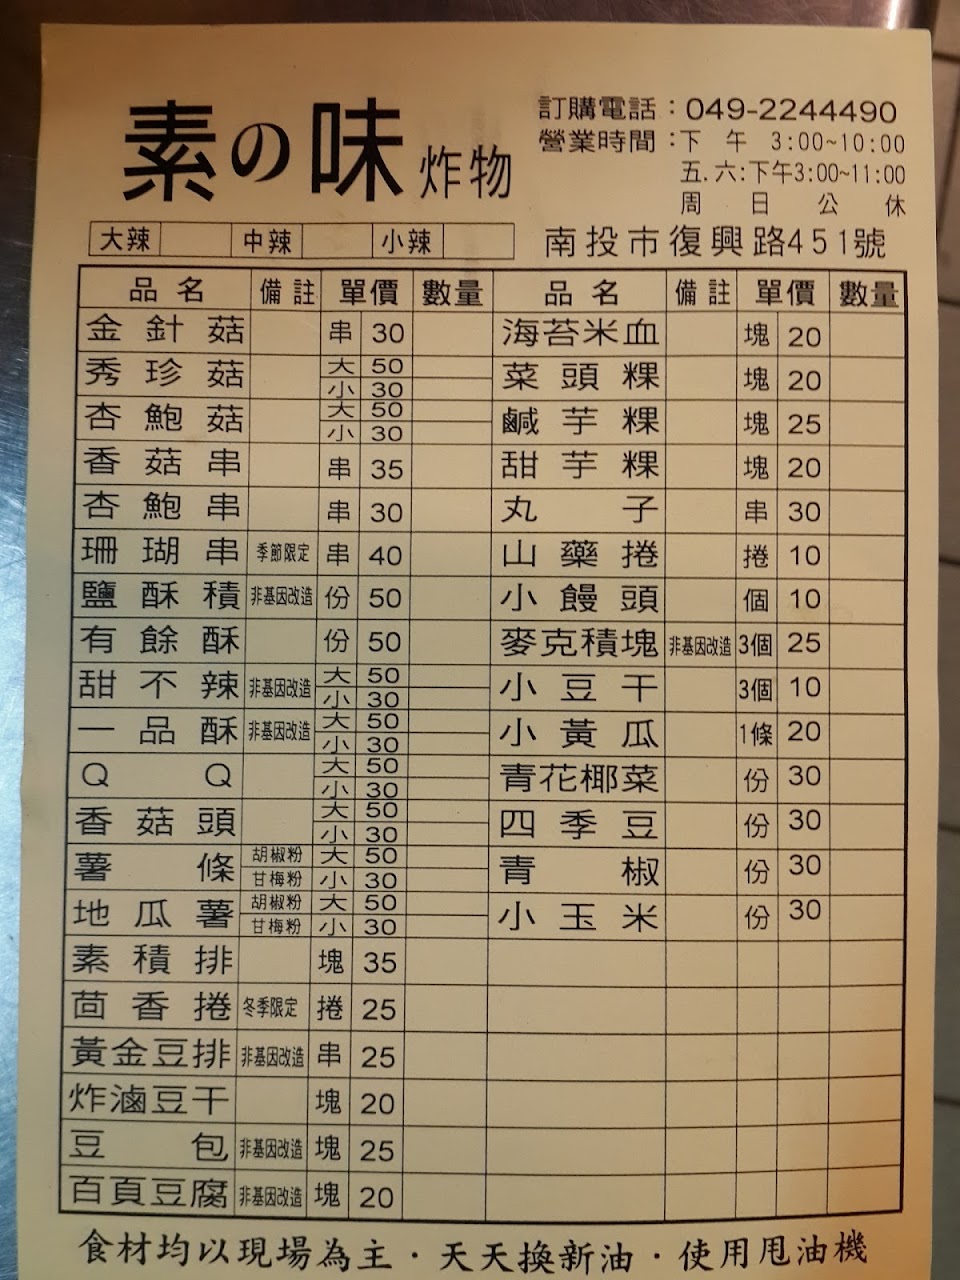 素の味 炸物
訂購電話：049-2244490
營業時間：下午 3:00~10:00
五.六:下午3:00~11:00
周日公休
大辣 中辣 小辣
南投市復興路451號
品名 備註 單價 數量 品名 備註 單價 數量
金針菇 串 30 海苔米血 塊 20
秀珍菇 大 50 小 30 菜頭粿 塊 20
杏鮑菇 大 50 小 30 鹹芋粿 塊 25
香菇串 串 35 甜芋粿 塊 20
杏鮑串 串 30 丸子 串 30
珊瑚串 季節限定 串 40 山藥捲 捲 10
鹽酥積 非基因改造 份 50 小饅頭 個 10
有餘酥 份 50 麥克積塊 非基因改造 3個 25
甜不辣 非基因改造 大 50 小 30 小豆干 3個 10
一品酥 非基因改造 大 50 小 30 小黃瓜 1條 20
QQ 大 50 小 30 青花椰菜 份 30
香菇頭 大 50 小 30 四季豆 份 30
薯條 胡椒粉 大 50 甘梅粉 小 30 青椒 份 30
地瓜薯 胡椒粉 大 50 甘梅粉 小 30 小玉米 份 30
素積排 塊 35
茴香捲 冬季限定 捲 25
黃金豆排 非基因改造 串 25
炸滷豆干 塊 20
豆包 非基因改造 塊 25
百頁豆腐 非基因改造 塊 20
食材均以現場為主．天天換新油．使用甩油機